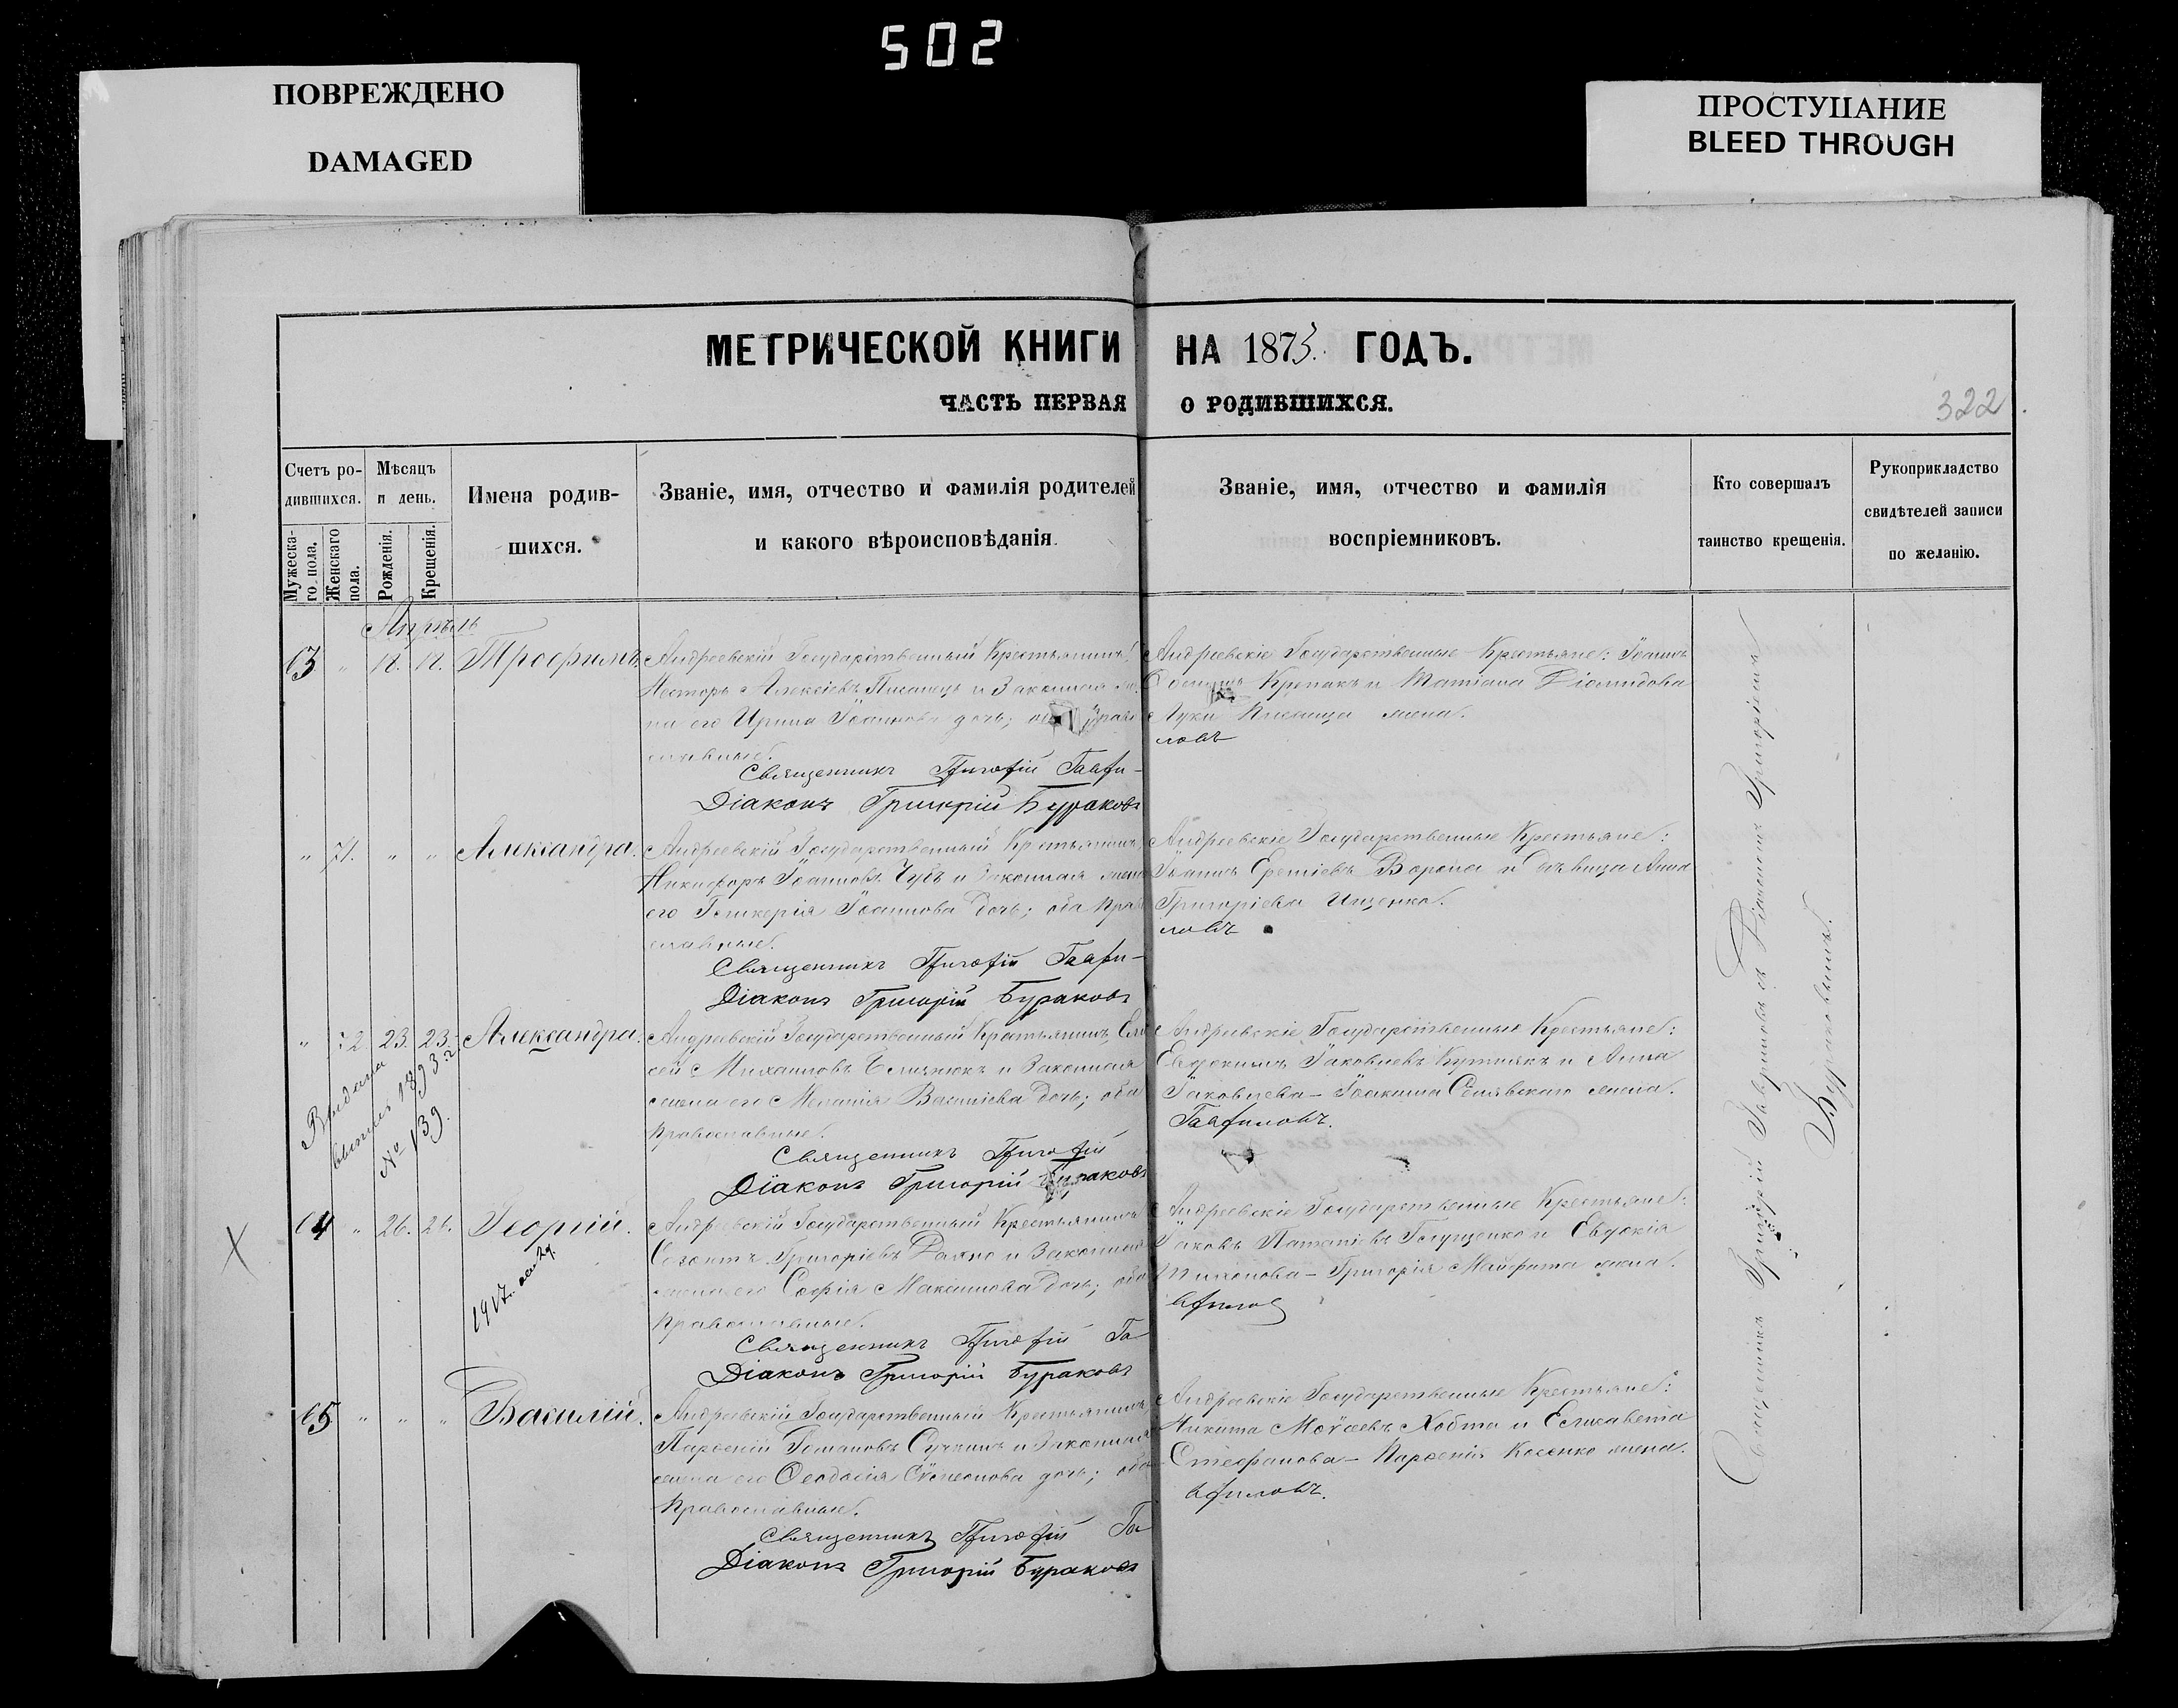 502
ПОВРЕЖДЕНО
DAMAGED
ПРОСТУПАНИЕ
BLEED THROUGH
МЕТРИЧЕСКОЙ КНИГИ НА 1873. ГОДЪ.
ЧАСТЬ ПЕРВАЯ О РОДИВШИХСЯ.
322
Счетъ ро-
дившихся.
Мужеска-
го пола.
Женскаго
пола.
Мѣсяцъ
и день.
Рожденія.
Крещенія.
Имена родив-
шихся.
Званіе, имя, отчество и фамилія родителей
и какого вѣроисповѣданія
Званіе, имя, отчество и фамилія
воспріемниковъ.
Кто совершалъ
таинство крещенія.
Рукоприкладство
свидѣтелей записи
по желанію.
Апрѣль
63 " Трофимъ
Андреевскій Государственный Крестьянинъ
Несторъ Алексіевъ Писанецъ и Законная
на его Ирина Іоаннова дочь;
славные.
Священникъ Григорій Гаври-
Діаконъ Григорій Бураковъ
Андреевскіе Государственные Крестьяне: Іоаннъ
Крепакъ и Татіана Діомидова
Луки Писанца жена.
ловъ
" 71. " " Александра.
Андреевскій Государственный Крестьянинъ
Никифоръ Іоанновъ Чубъ и Законная жена
его Гликерія Іоаннова дочь; оба Прав
славные.
Священникъ Григорій Гаври-
Діаконъ Григорій Бураковъ
Андреевскіе Государственные Крестьяне:
Іоаннъ Ереміевъ Ворона и Дѣвица Анна
Григоріева Ищенко.
ловъ
" 72 23. 23. Александра.
Выдана
выпись 1893 г.
№ 139.
Андреевскій Государственный Крестьянинъ Ели
сей Михаиловъ и Законная
жена его Меланія Василіева дочь; оба
Православные.
Священникъ Григорій
Діаконъ Григорій Бураковъ
Андреевскіе Государственные Крестьяне:
Евдокимъ Іаковлевъ Кутнякъ и Анна
Іаковлева - Іоакима Синявскаго жена.
Гавриловъ.
Х
64 " 26. 26. Георгій.
1917.
Андреевскій Государственный Крестьянинъ
Созонтъ Григоріевъ и Законная
жена его Софія Максимова дочь; оба
Православные.
Священникъ Григорій Га
Діаконъ Григорій Бураковъ
Андреевскіе Государственные Крестьяне:
Іаковъ Глущенко и Евдокія
- Григорія жена.
врилов
65 " " " Василій.
Андреевскій Государственный Крестьянинъ
Парфеній Романовъ и Законная
жена его Феодосія дочь; оба
Православные.
Священникъ Григорій Га
Діаконъ Григорій Бураковъ
Андреевскіе Государственные Крестьяне:
Никита Моѵсеевъ Хобта и Елисавета
Стефанова - Парфенія Косенко жена.
вриловъ.
Священникъ Григорій Гавриловъ съ Діакономъ Григоріемъ
Бураковымъ.